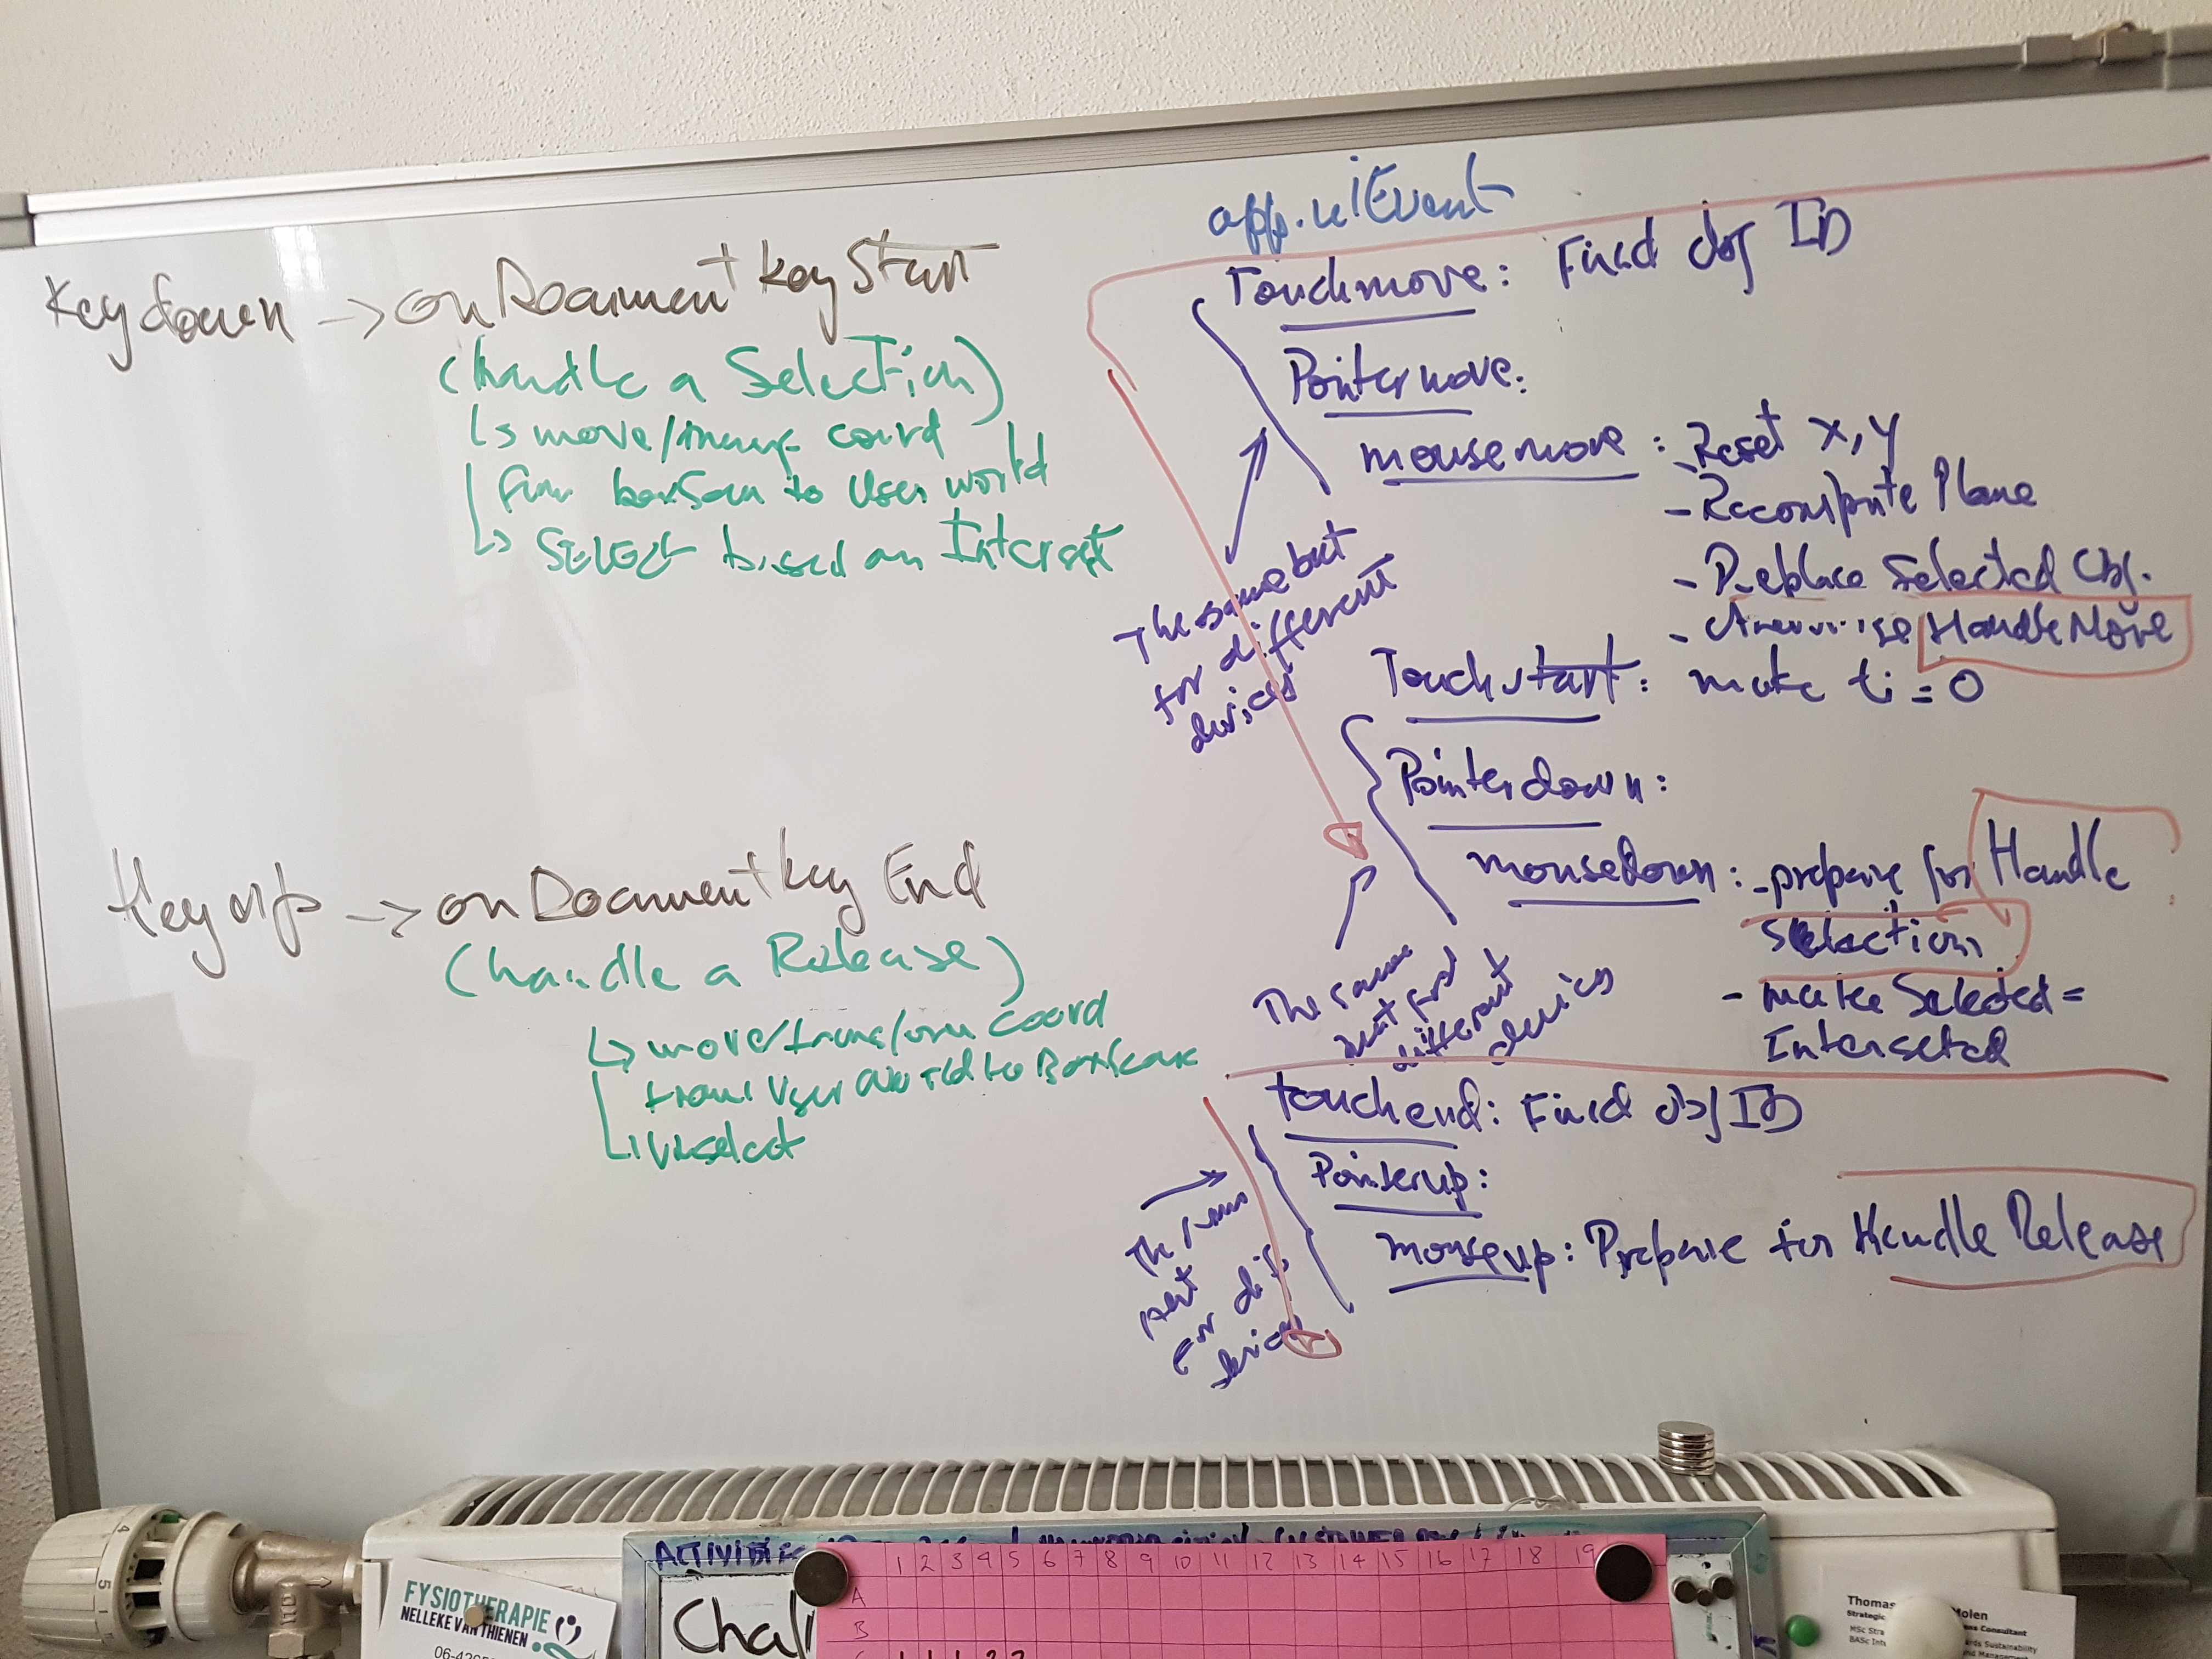 Keydown -> onDocumentkeyStart
(handle a Selection)
move/ coord
from boxScen to User world
SELECT based on Intersect
Keyup -> onDocumentkey End
(handle a Release)
move/transform coord
from User World to BoxScene
Unselect
app.uiEvent
Touchmove: Find obj ID
Pointermove:
mousemove: - Reset x,y
- Recompute Plane
- Replace Selected Obj.
- HandleMove
The same but
for different
devices
Touchstart: make ti = 0
Pointerdown:
mousedown: - prepare for Handle
Selection
- make Selected =
Intersected
The same
but for
different
devices
touchend: Find obj ID
Pointerup:
mouseup: Prepare for Handle Release
The same
but
for dif
devices
4
5
1
FYSIOTHERAPIE
NELLEKE VAN THIENEN
Chal
1 2 3 4 5 6 7 8 9 10 11 12 13 14 15 16 17 18 19
A
B
Thomas Molen
Strategic Consultant
MSc Stra
BASc Int